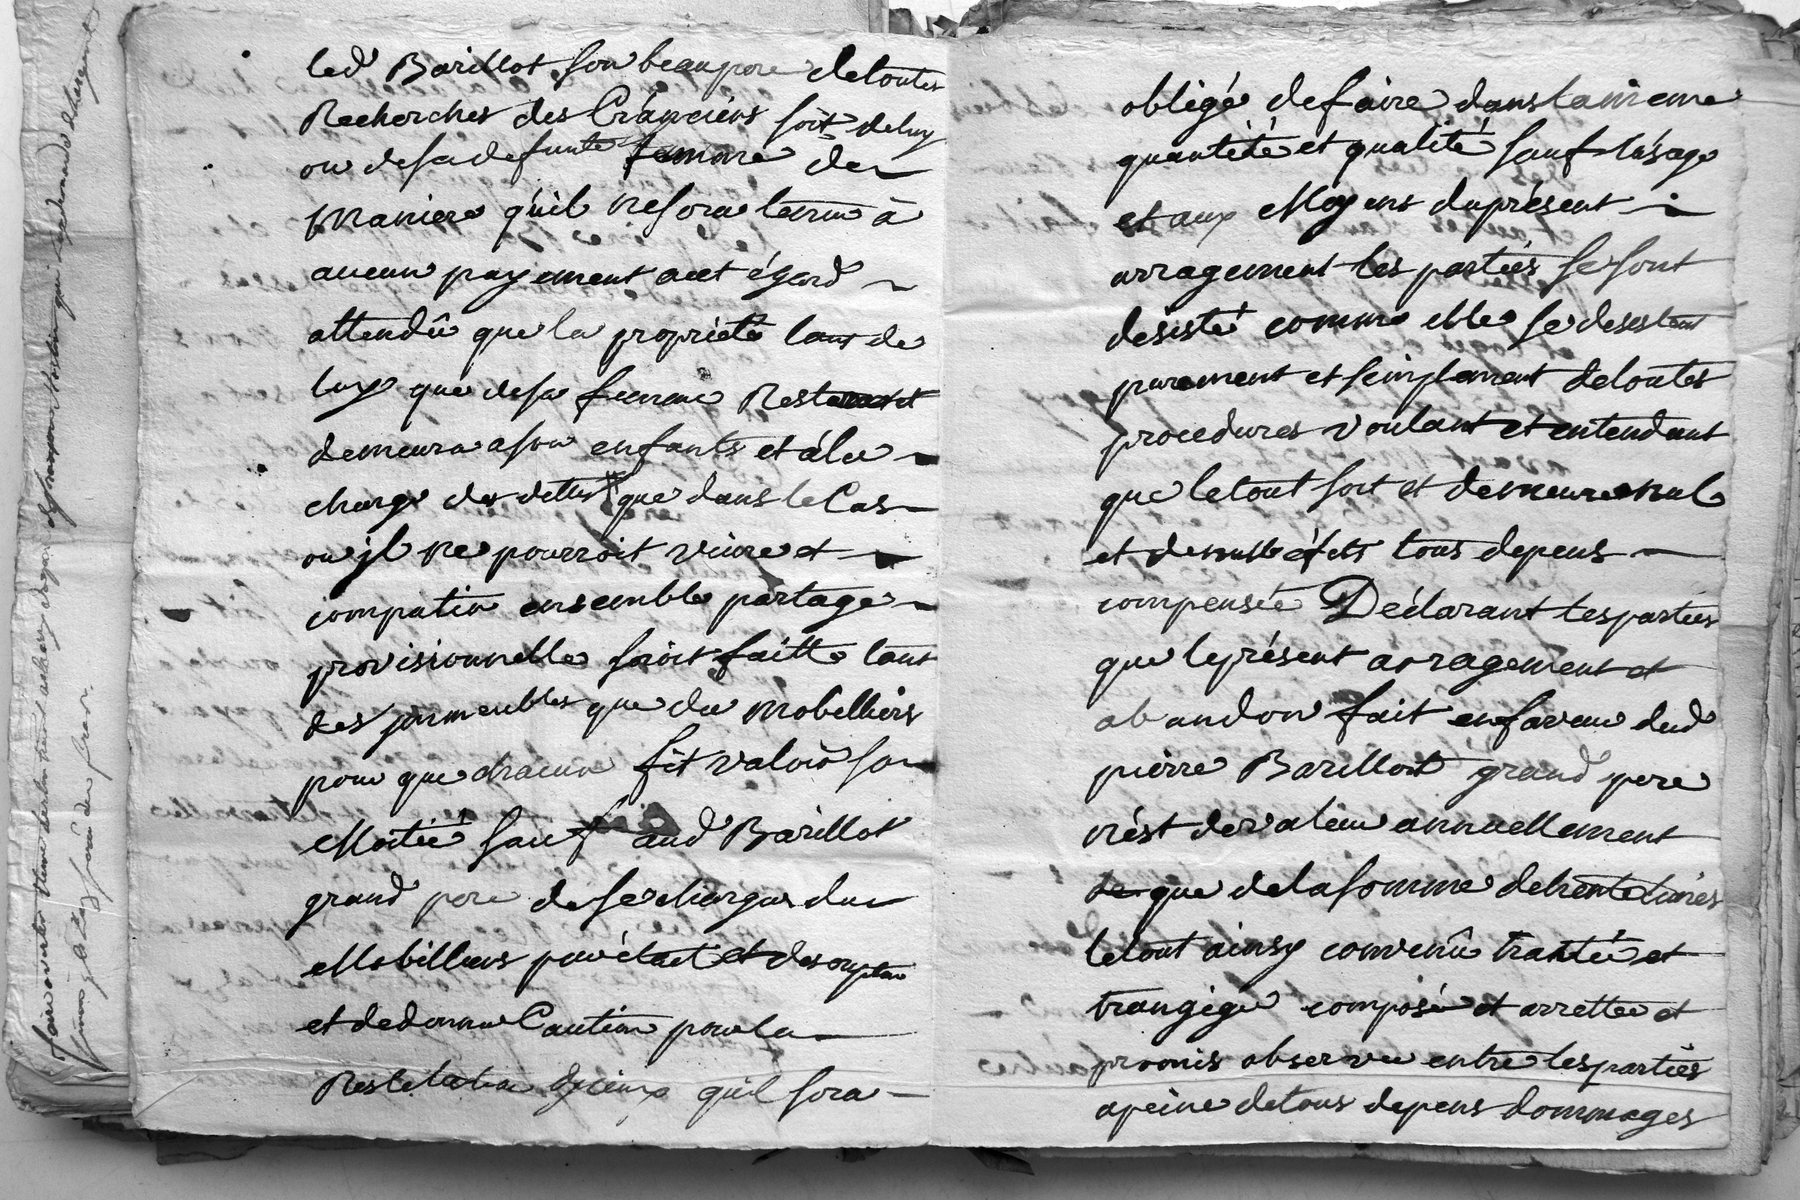 led Barillot son beaupere de toutes
Recherches des Créanciers soit de luy
ou de sa defunte femme de
Maniere qu'il ne sera tenu à
aucun payement acet égard
attendû que la propriété tant de
luy que de sa femme Reste et
demeure a son enfants et à la
charge des dettes que dans le Cas
ou jl ne pourroit vivre et
compatir ensemble partage
provisionnelle seroit faitte tant
des jmmeubles que du Mobilliers
pour que chacun fit valoir sa
Moitié sauf aud Barillot
grand pere de se charger du
Mobilliers par état et description
et de donner Caution pour la
Restitution d'jceux qu'il sera
obligé de faire dans la même
quantité et qualité sauf l'usage
et aux Moyens du présent
arragement les parties se sont
desisté comme elle se desistent
purement et simplement de toutes
procedures voulant et entendant
que le tout soit et demeure nul
et de nulle éfets tous depens
compensée Déclarant les parties
que le présent arragement et
abandon fait en faveur dud
pierre Barillot grand pere
n'ést de valeur annuellement
que de la somme de trente livres
le tout ainsy convenû traitté et
trangigé composé et arrettée et
promis observer entre les parties
a peine de tous depens dommages